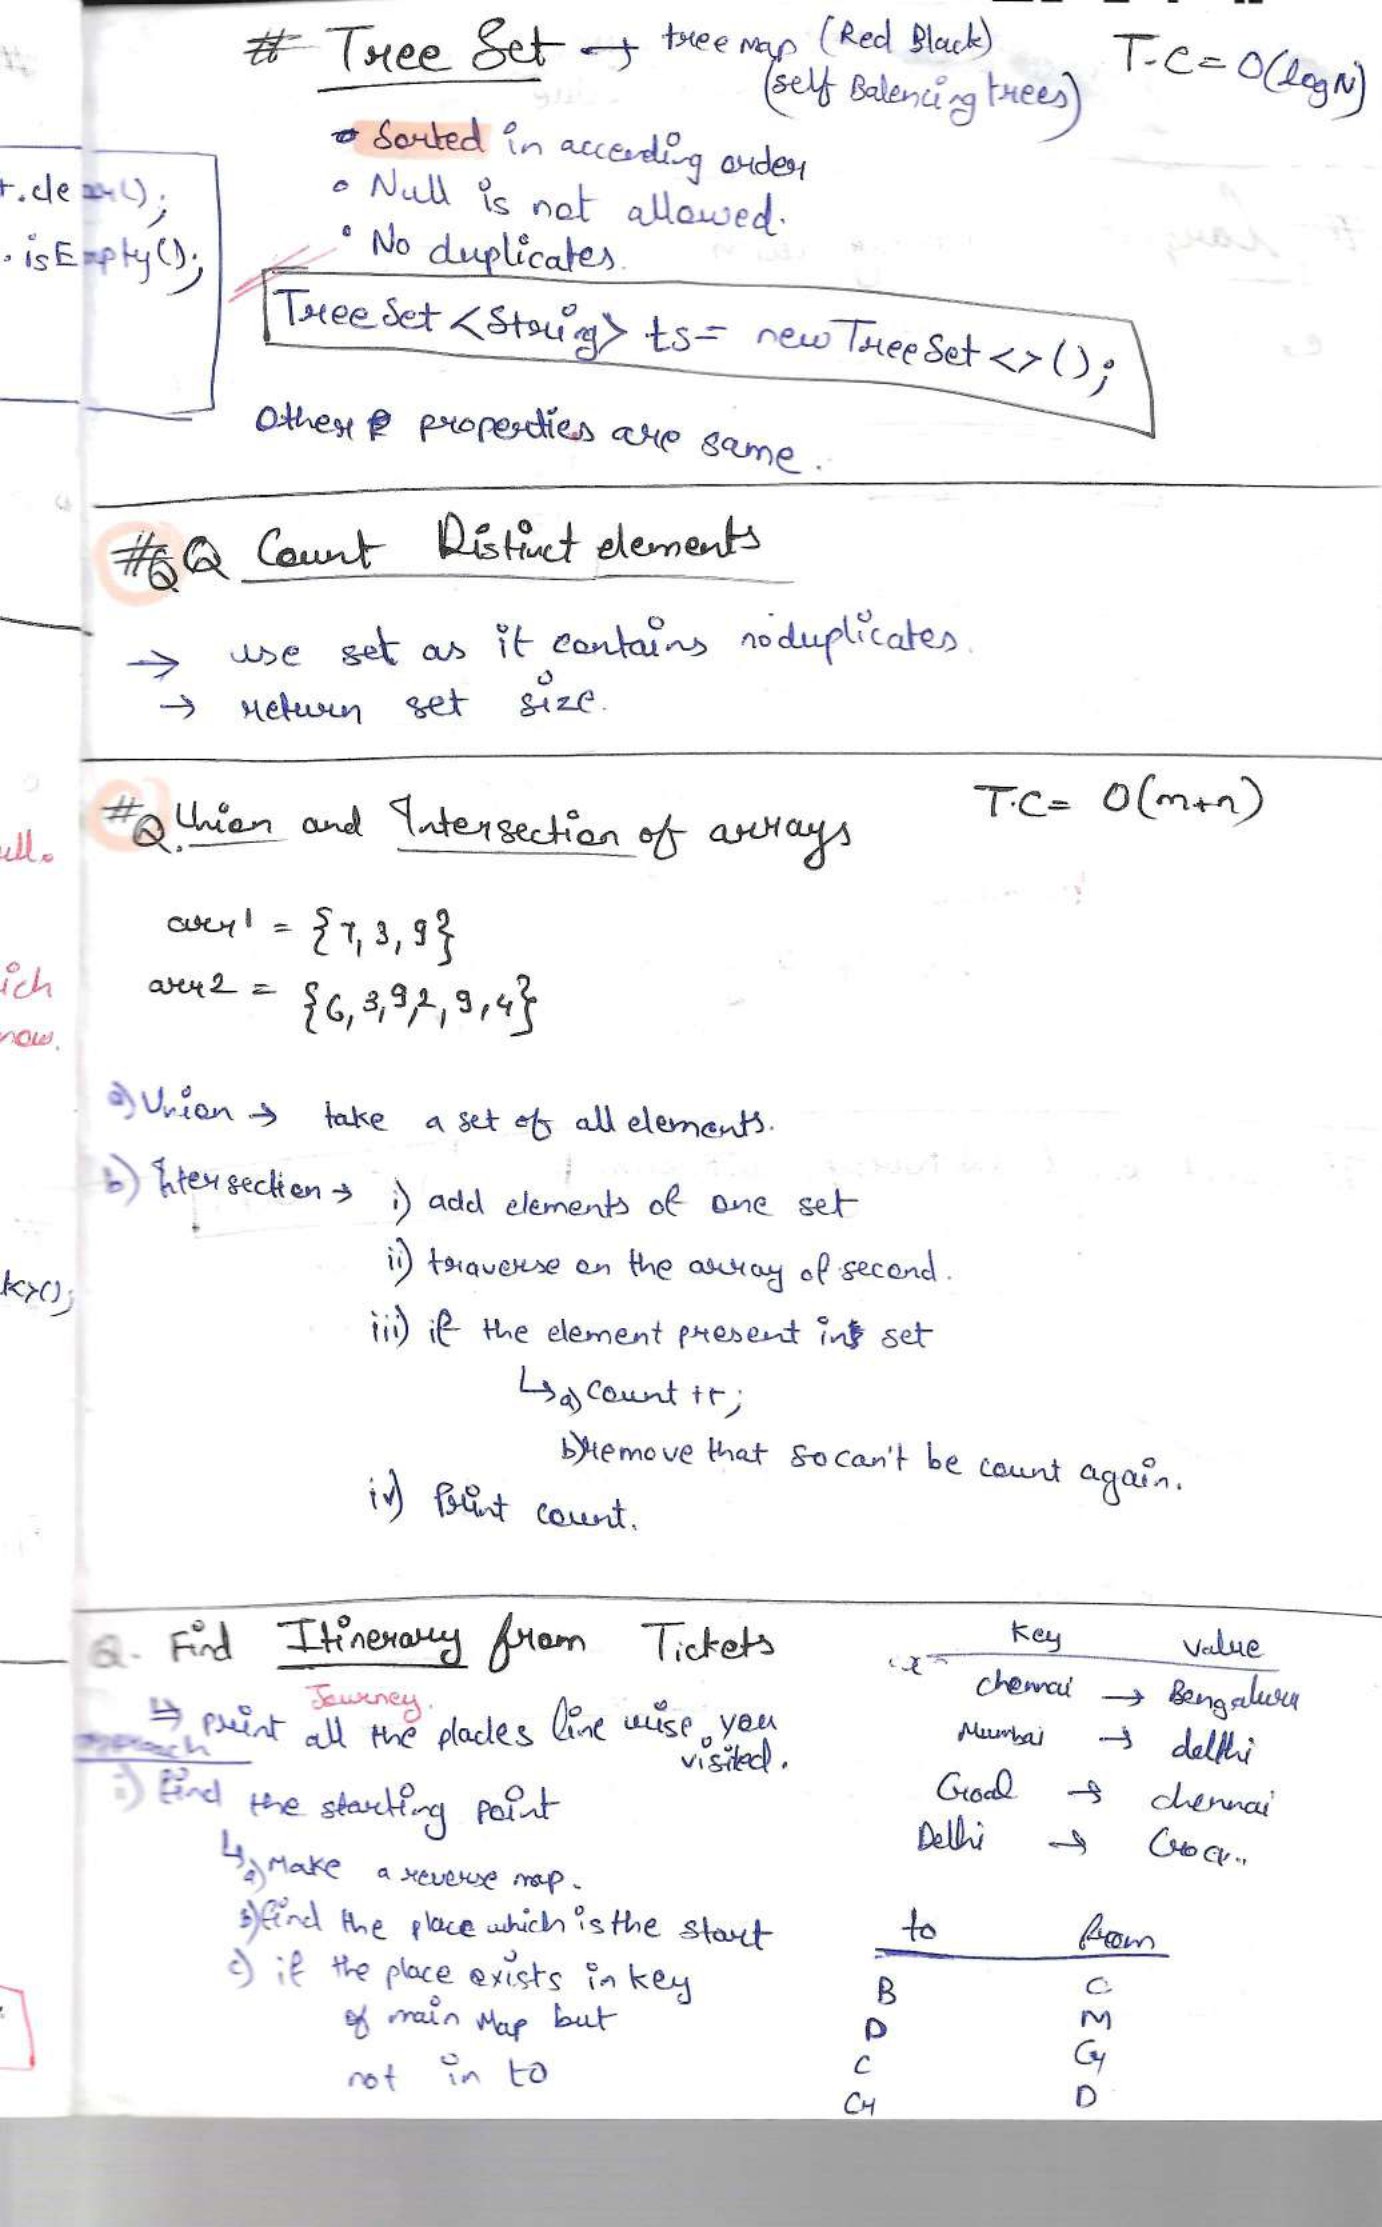 # Tree Set → tree map (Red Black)
(self Balencing trees)
T.C = O(log N)
• Sorted in accending order
• Null is not allowed.
• No duplicates.
TreeSet <String> ts = new TreeSet <> ();
Other properties are same.
isEmpty();
#Q Count Distinct elements
→ use set as it contains no duplicates.
→ return set size.
#Q. Union and Intersection of arrays
T.C = O(m+n)
arr1 = {7, 3, 9}
arr2 = {6, 3, 9, 2, 9, 4}
a) Union → take a set of all elements.
b) Intersection → i) add elements of one set
ii) traverse on the array of second.
iii) if the element present in set
↳ a) Count ++;
b) remove that so can't be count again.
iv) Print count.
ich
now.
k>();
Q. Find Itinerary from Tickets
Journey.
⇒ print all the places line wise you
visited.
approach
i) find the starting point
↳ a) Make a reverse map.
b) find the place which is the start
c) if the place exists in key
of main Map but
not in to
Key Value
chennai → Bengaluru
Mumbai → delhi
Goa → chennai
Delhi → Goa
to from
B C
D M
C G
G D